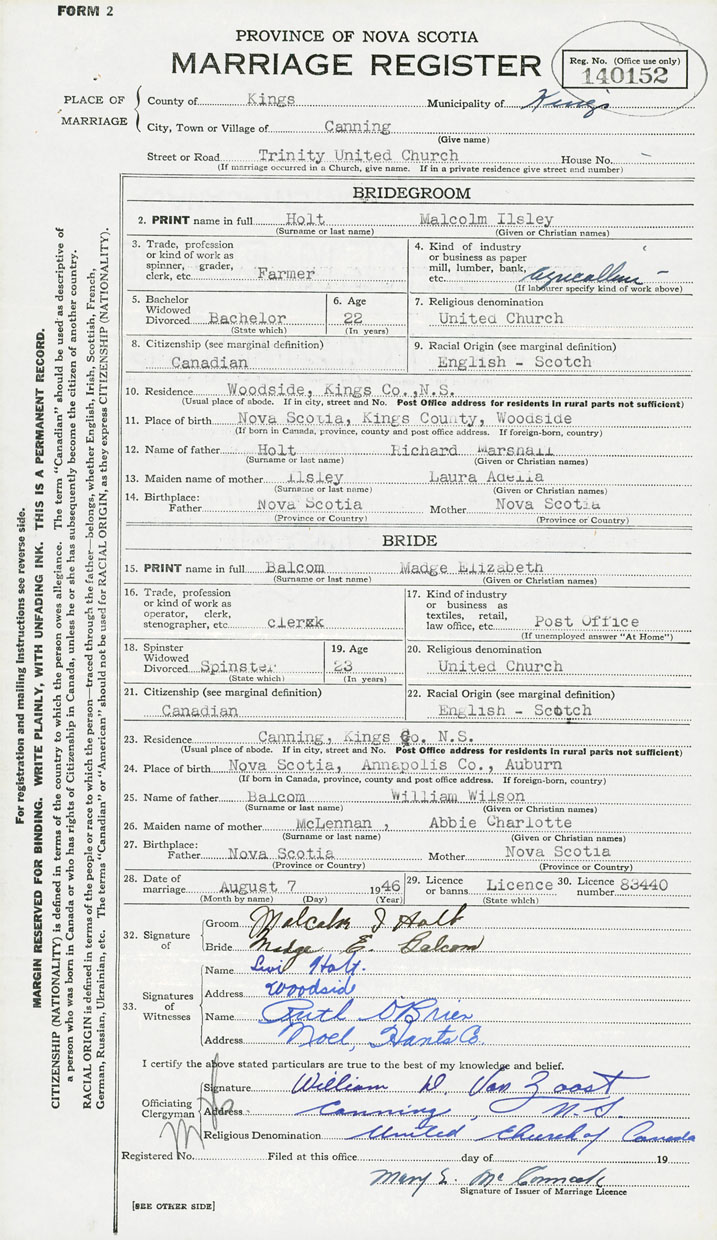 FORM 2
PROVINCE OF NOVA SCOTIA
MARRIAGE REGISTER
Reg. No. (Office use only)
140152
PLACE OF MARRIAGE
County of Kings Municipality of Kings
City, Town or Village of Canning
(Give name)
Street or Road Trinity United Church House No. –
(If marriage occurred in a Church, give name. If in a private residence give street and number)
BRIDEGROOM
2. PRINT name in full Holt Malcolm Ilsley
(Surname or last name) (Given or Christian names)
3. Trade, profession
or kind of work as
spinner, grader,
clerk, etc. Farmer
4. Kind of industry
or business as paper
mill, lumber, bank,
etc.
(If labourer specify kind of work above)
5. Bachelor
Widowed
Divorced Bachelor
(State which)
6. Age
22
(In years)
7. Religious denomination
United Church
8. Citizenship (see marginal definition)
Canadian
9. Racial Origin (see marginal definition)
English - Scotch
10. Residence Woodside, Kings Co., N.S.
(Usual place of abode. If in city, street and No. Post Office address for residents in rural parts not sufficient)
11. Place of birth Nova Scotia, Kings County, Woodside
(If born in Canada, province, county and post office address. If foreign-born, country)
12. Name of father Holt Richard Marshall
(Surname or last name) (Given or Christian names)
13. Maiden name of mother Ilsley Laura Adella
(Surname or last name) (Given or Christian names)
14. Birthplace:
Father Nova Scotia Mother Nova Scotia
(Province or Country) (Province or Country)
BRIDE
15. PRINT name in full Balcom Madge Elizabeth
(Surname or last name) (Given or Christian names)
16. Trade, profession
or kind of work as
operator, clerk,
stenographer, etc. clerxk
17. Kind of industry
or business as
textiles, retail,
law office, etc. Post Office
(If unemployed answer "At Home")
18. Spinster
Widowed
Divorced Spinster
(State which)
19. Age
23
(In years)
20. Religious denomination
United Church
21. Citizenship (see marginal definition)
Canadian
22. Racial Origin (see marginal definition)
English - Scotch
23. Residence Canning, Kings Co. N.S.
(Usual place of abode. If in city, street and No. Post Office address for residents in rural parts not sufficient)
24. Place of birth Nova Scotia, Annapolis Co., Auburn
(If born in Canada, province, county and post office address. If foreign-born, country)
25. Name of father Balcom William Wilson
(Surname or last name) (Given or Christian names)
26. Maiden name of mother McLennan , Abbie Charlotte
(Surname or last name) (Given or Christian names)
27. Birthplace:
Father Nova Scotia Mother Nova Scotia
(Province or Country) (Province or Country)
28. Date of
marriage August 7 1946
(Month by name) (Day) (Year)
29. Licence
or banns. Licence
(State which)
30. Licence
number 83440
32. Signature of
Groom Malcolm I Holt
Bride Madge E. Balcom
33. Signatures of Witnesses
Name Levi Holt.
Address Woodside
Name Ruth O'Brien
Address Noel, Hants Co.
I certify the above stated particulars are true to the best of my knowledge and belief.
Officiating Clergyman
Signature William D. Van Zoost
Address Canning, N.S.
Religious Denomination United Church of Canada
Registered No. Filed at this office day of 19
Mary E. McCormack
Signature of Issuer of Marriage Licence
[SEE OTHER SIDE]
For registration and mailing instructions see reverse side.
MARGIN RESERVED FOR BINDING. WRITE PLAINLY, WITH UNFADING INK. THIS IS A PERMANENT RECORD.
CITIZENSHIP (NATIONALITY) is defined in terms of the country to which the person owes allegiance. The term "Canadian" should be used as descriptive of
a person who was born in Canada or who has rights of Citizenship in Canada, unless he or she has subsequently become the citizen of another country.
RACIAL ORIGIN is defined in terms of the people or race to which the person—traced through the father—belongs, whether English, Irish, Scottish, French,
German, Russian, Ukrainian, etc. The terms "Canadian" or "American" should not be used for RACIAL ORIGIN, as they express CITIZENSHIP (NATIONALITY).